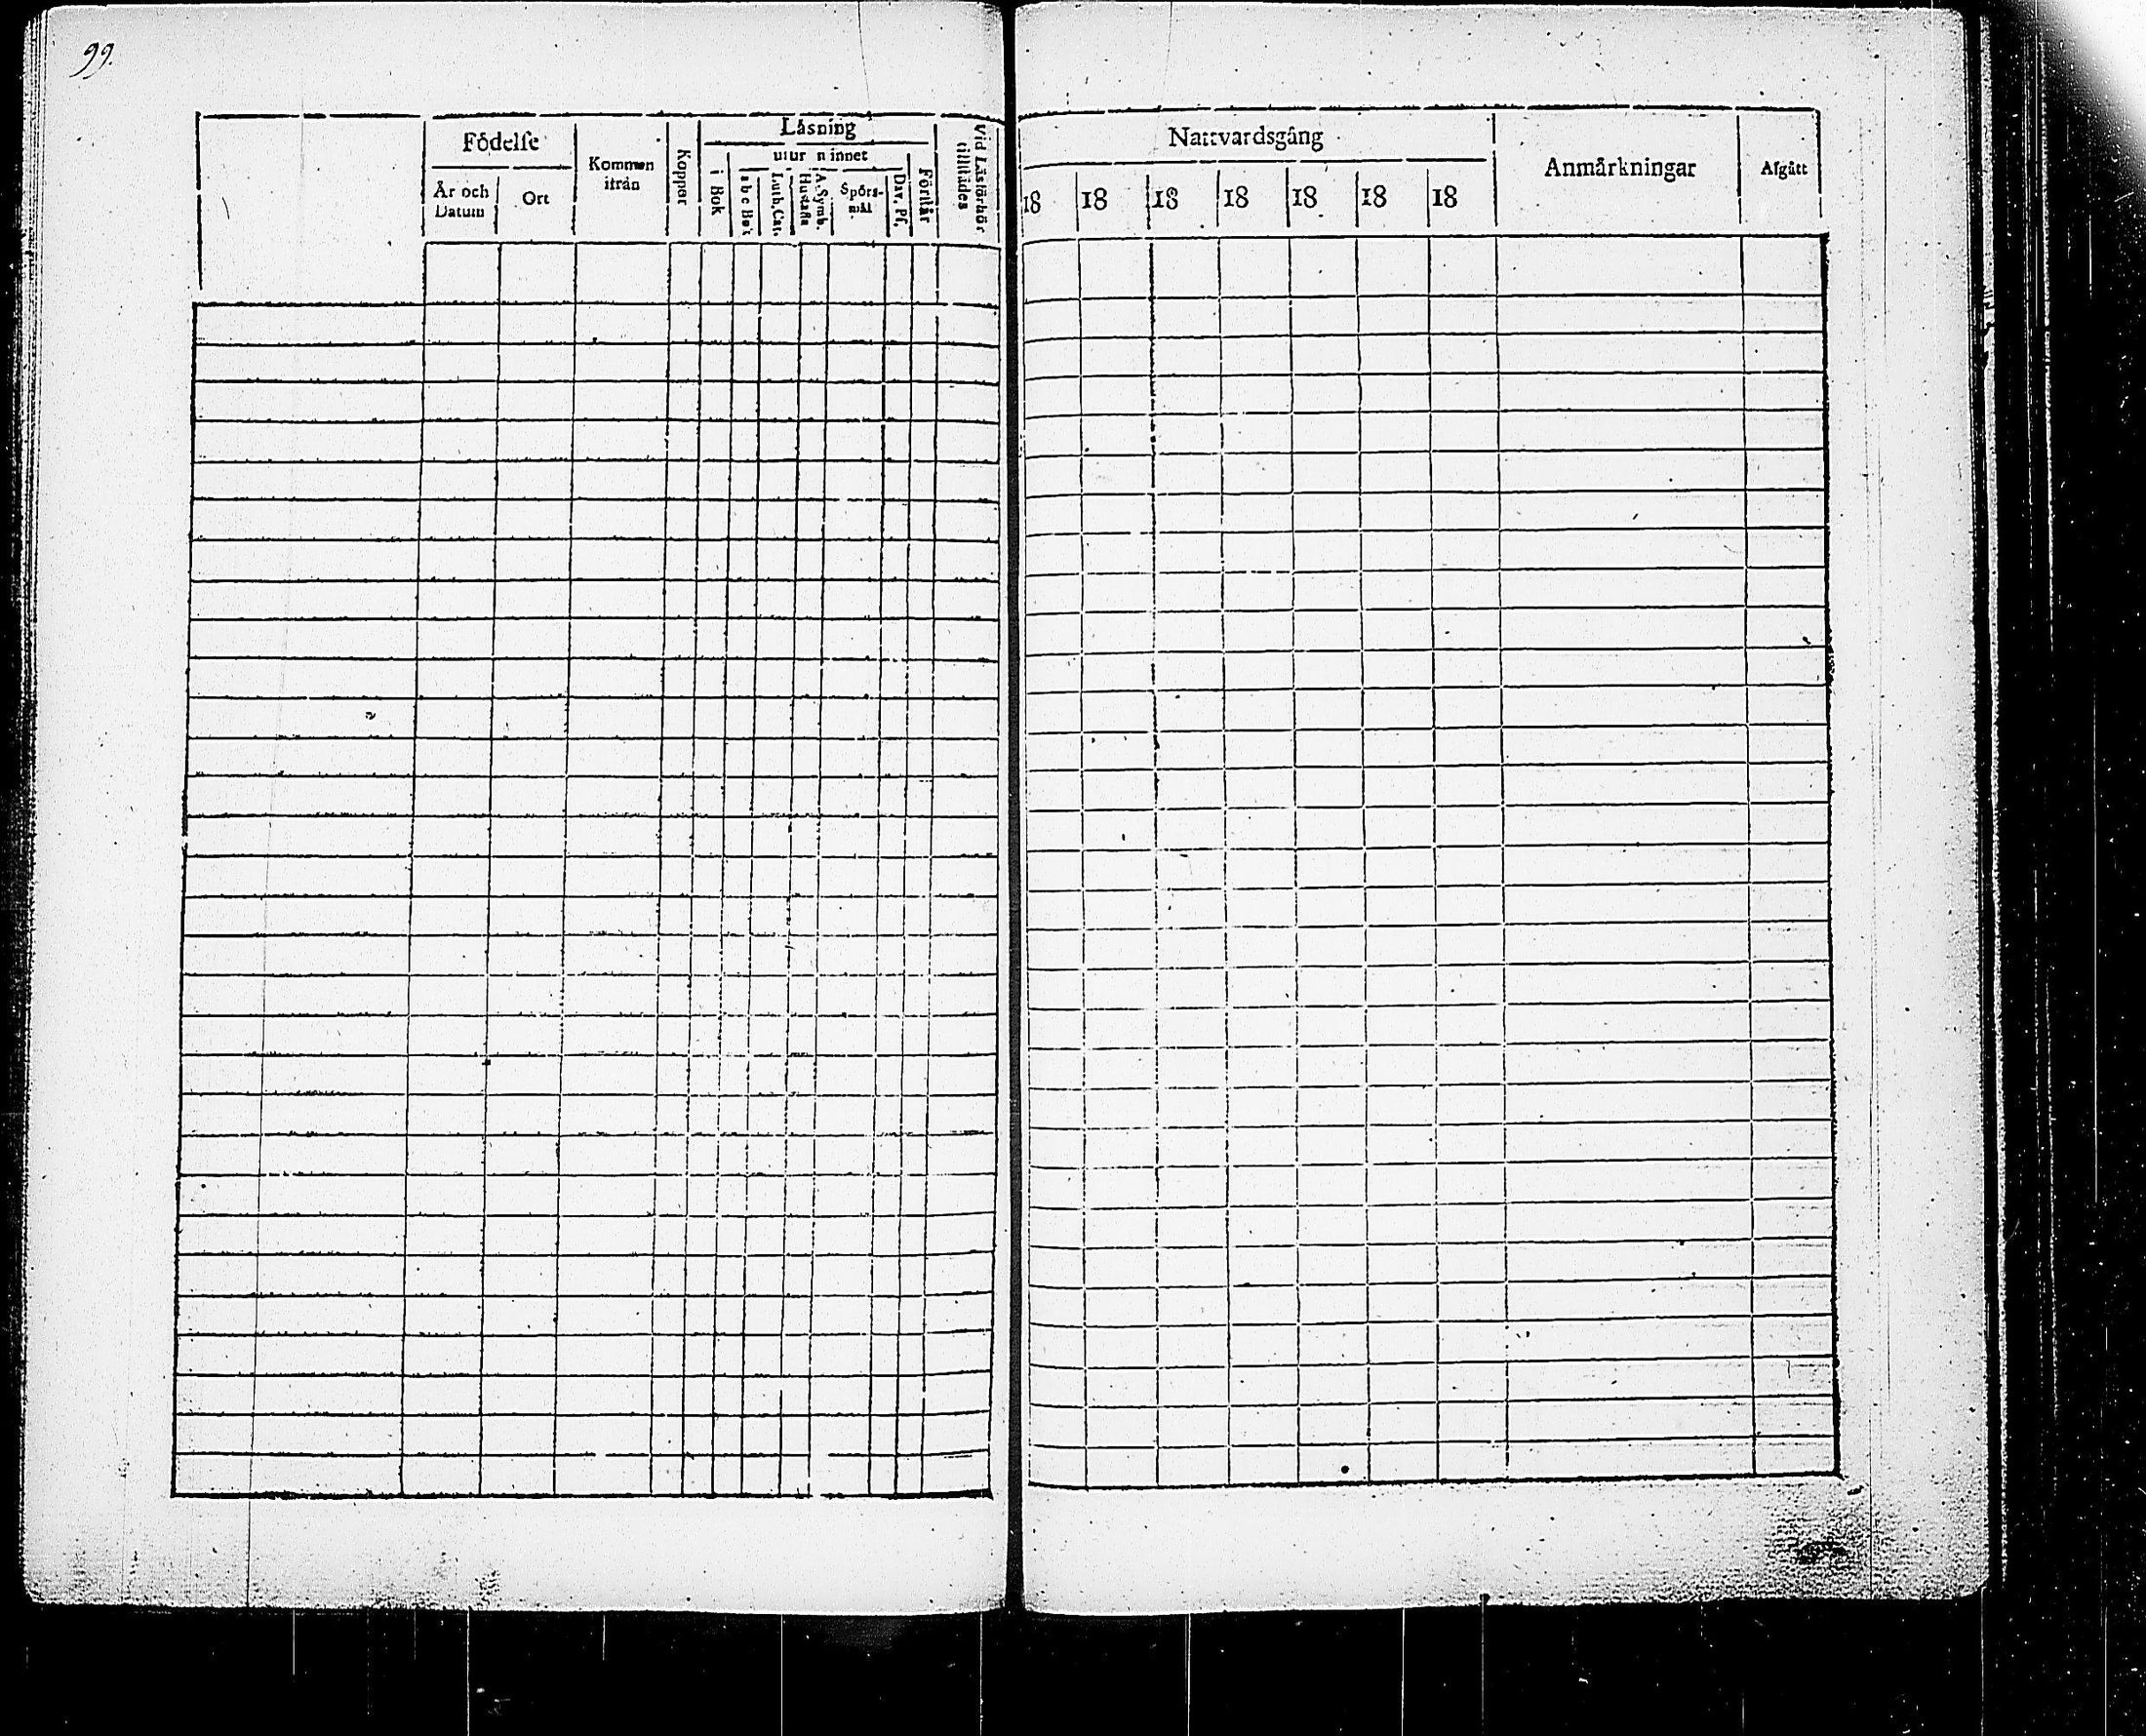 99.
Födelse
År och Datum
Ort
Kommen ifrån
Koppor
Läsning
i Bok
utur minnet
a b c Bok
Luth. Cat.
A. Symb. Hustafla
Spörs-
mål
Dav. Ps.
Förstår
Vid Läsförhör tillstädes
Nattvardsgång
18 18 18 18 18 18 18
Anmärkningar
Afgått